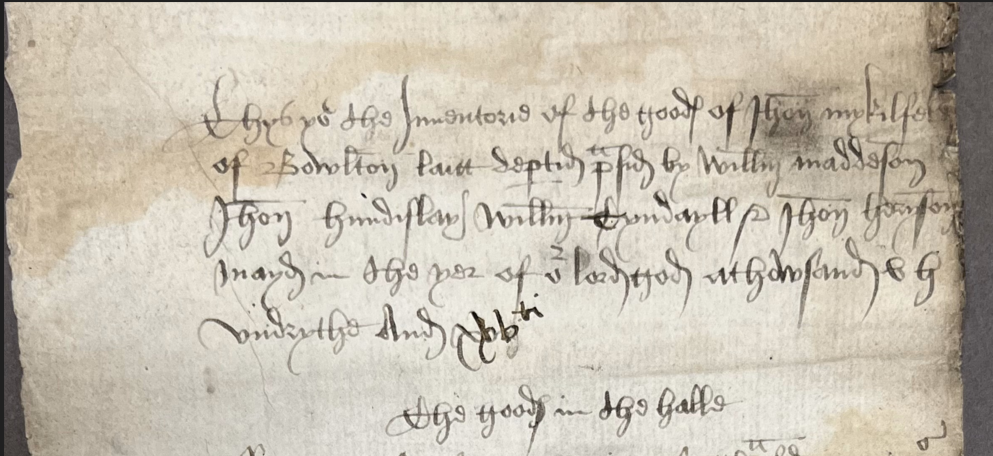 Thys ys the Inventorie of the goodes of Jhon mykilfel
of Bowlton lait deptid p̄sid by Willm maddeson
Jhon hindislay Willm Tyndayll & Jhon heryson
mayd in the yer of oʳ lord god a thowsand v h
vndrythe And xxvti
The goodes in the halle